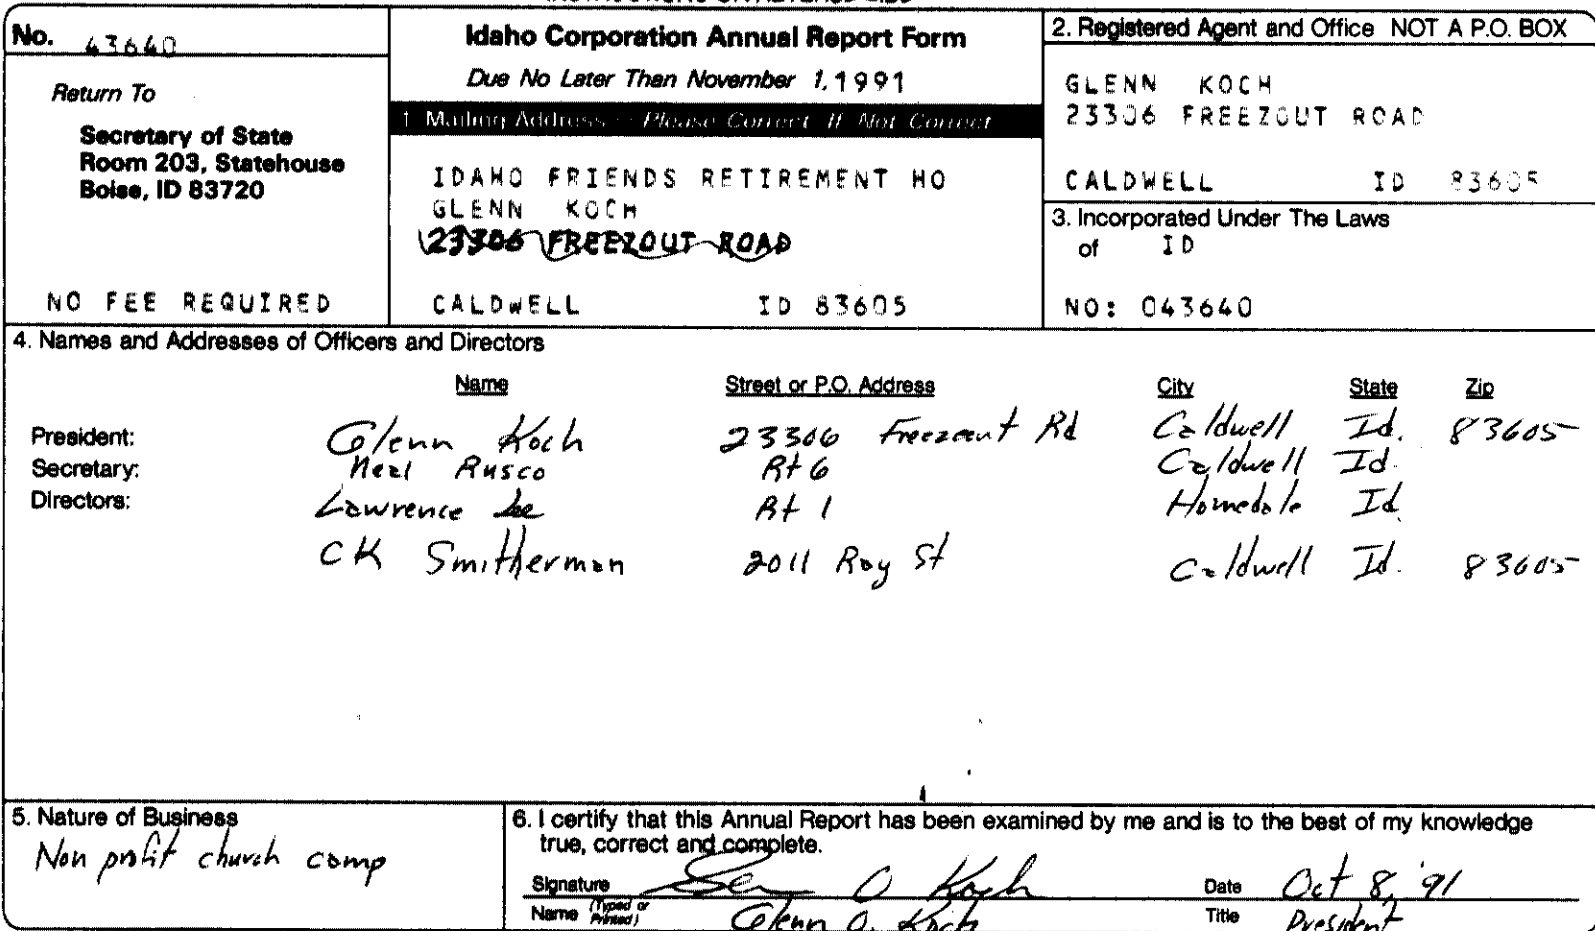 No. 43640
Return To
Secretary of State
Room 203, Statehouse
Boise, ID 83720
NO FEE REQUIRED
Idaho Corporation Annual Report Form
Due No Later Than November 1, 1991
1. Mailing Address - Please Correct If Not Correct
IDAHO FRIENDS RETIREMENT HO
GLENN KOCH
23306 FREEZOUT ROAD
CALDWELL ID 83605
2. Registered Agent and Office NOT A P.O. BOX
GLENN KOCH
23306 FREEZOUT ROAD
CALDWELL ID 83605
3. Incorporated Under The Laws
of ID
NO: 043640
4. Names and Addresses of Officers and Directors
Name Street or P.O. Address City State Zip
President: Glenn Koch 23306 Freezout Rd Caldwell Id. 83605
Secretary: Neal Rusco Rt 6 Caldwell Id.
Directors: Lawrence Lee Rt 1 Homedale Id
CK Smitherman 2011 Ray St Caldwell Id. 83605
5. Nature of Business
Non profit church comp
6. I certify that this Annual Report has been examined by me and is to the best of my knowledge
true, correct and complete.
Signature Glenn O Koch Date Oct 8, '91
Name (Typed or Printed) Glenn O. Koch Title President